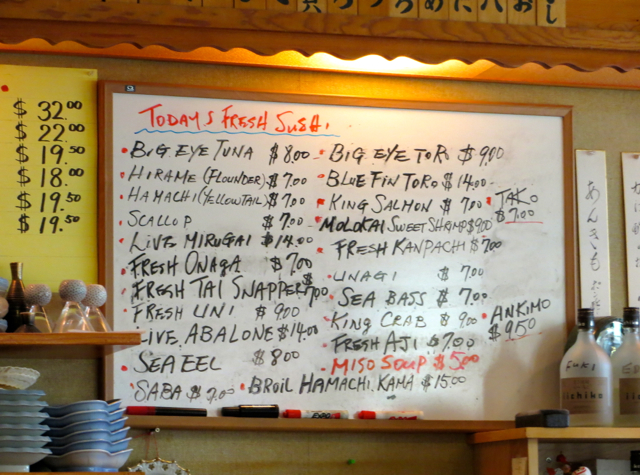 $ 32.00
$ 22.00
$ 19.50
$ 18.00
$ 19.50
$ 19.50
TODAYS FRESH SUSHI
BIG EYE TUNA $8.00
HIRAME (FLOUNDER) $7.00
HAMACHI (YELLOWTAIL) $7.00
SCALLOP $7.00
LIVE MIRUGAI $14.00
FRESH ONAGA $7.00
FRESH TAI SNAPPER $7.00
FRESH UNI $9.00
LIVE ABALONE $14.00
SEA EEL $8.00
SABA $7.00
BIG EYE TORO $9.00
BLUE FIN TORO $14.00
KING SALMON $7.00
MOLOKAI SWEET SHRIMP $9.00
FRESH KANPACHI $7.00
UNAGI $7.00
SEA BASS $7.00
KING CRAB $9.00
FRESH AJI $7.00
MISO SOUP $5.00
BROIL HAMACHI KAMA $15.00
TAKO
$7.00
ANKIMO
$9.50
あんきもぶ
FUKI
iichiko